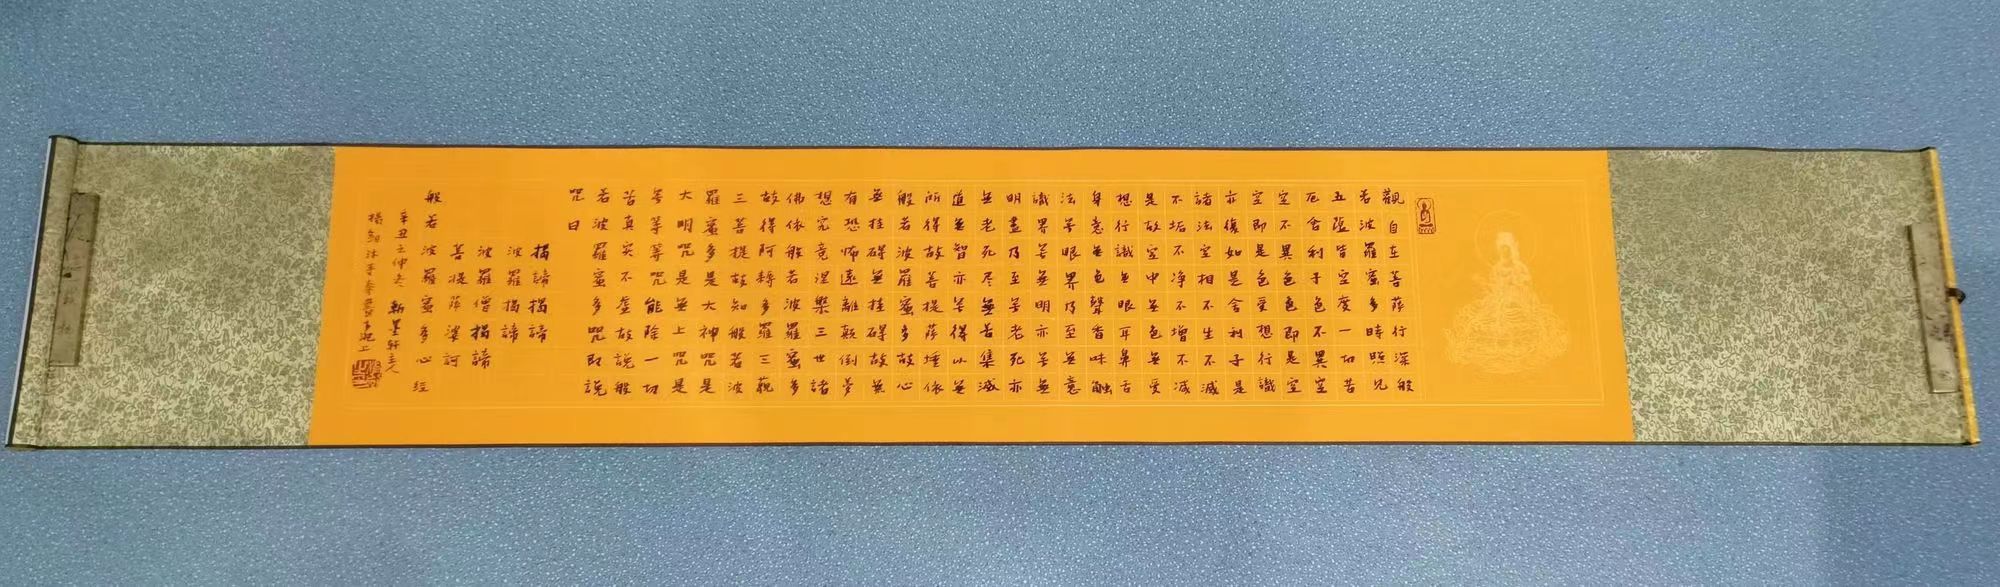 觀自在菩薩行深般
若波羅蜜多時照見
五蘊皆空度一切苦
厄舍利子色不異空
空不異色色即是空
空即是色受想行識
亦復如是舍利子是
諸法空相不生不滅
不垢不净不增不减
是故空中無色無受
想行識無眼耳鼻舌
身意無色聲香味觸
法無眼界乃至無意
識界無無明亦無無
明盡乃至無老死亦
無老死尽無苦集滅
道無智亦無得以無
所得故菩提薩埵依
般若波羅蜜多故心
無挂碍無挂碍故無
有恐怖遠離顛倒夢
想究竟涅槃三世諸
佛依般若波羅蜜多
故得阿耨多羅三藐
三菩提故知般若波
羅蜜多是大神咒是
大明咒是無上咒是
無等等咒能除一切
苦真实不虛故說般
若波羅蜜多咒即說
咒曰
揭諦揭諦
波羅揭諦
波羅僧揭諦
菩提薩婆訶
般若波羅蜜多心經
辛丑之仲冬 墨軒主人
楊 沐手奉書